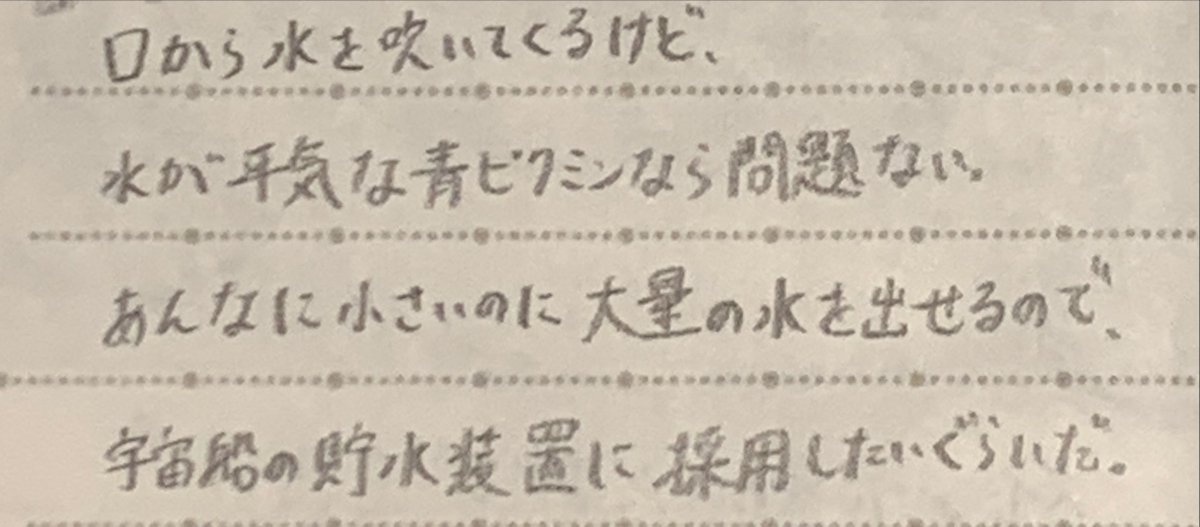 口から水を吹いてくるけど、
水が平気な青ピクミンなら問題ない。
あんなに小さいのに大量の水を出せるので、
宇宙船の貯水装置に採用したいぐらいだ。